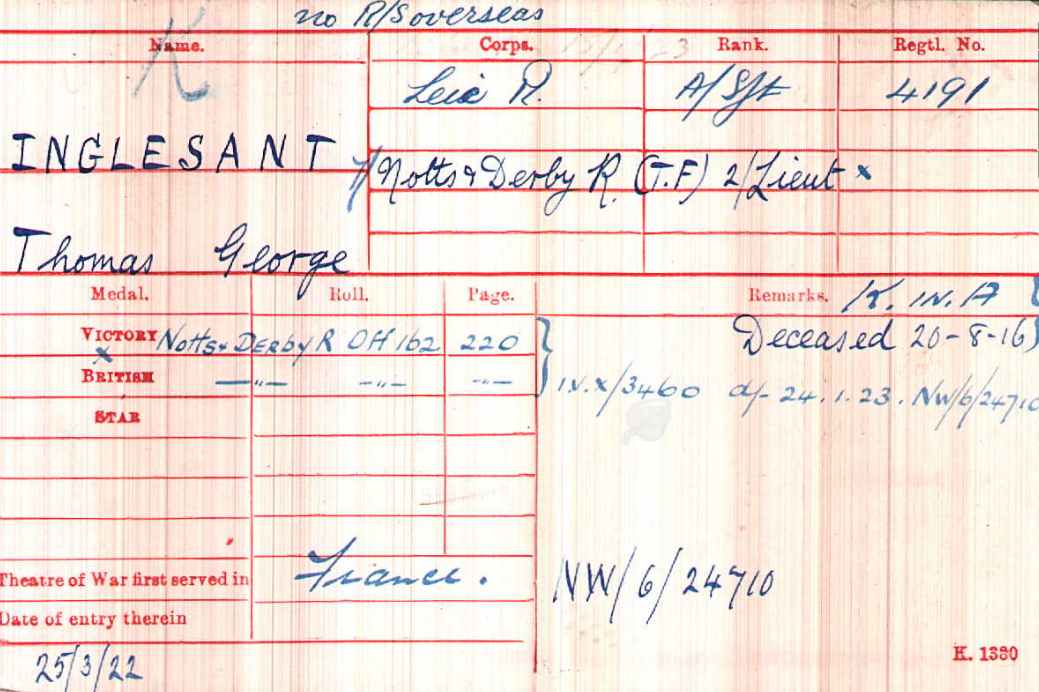 no R/S overseas
Name. Corps. Rank. Regtl. No.
K
Leic R. A/Sjt 4191
INGLESANT
7/ Notts & Derby R. (T.F) 2/Lieut x
Thomas George
Medal. Roll. Page. Remarks. K. in. A
VICTORY Notts & Derby R Off 162 220 Deceased 20-8-16
x
BRITISH —"— —"— —"— IV.X/3460 d/- 24.1.23. NW/6/24710
STAR
Theatre of War first served in France.
NW/6/24710
Date of entry therein
K. 1380
25/3/22